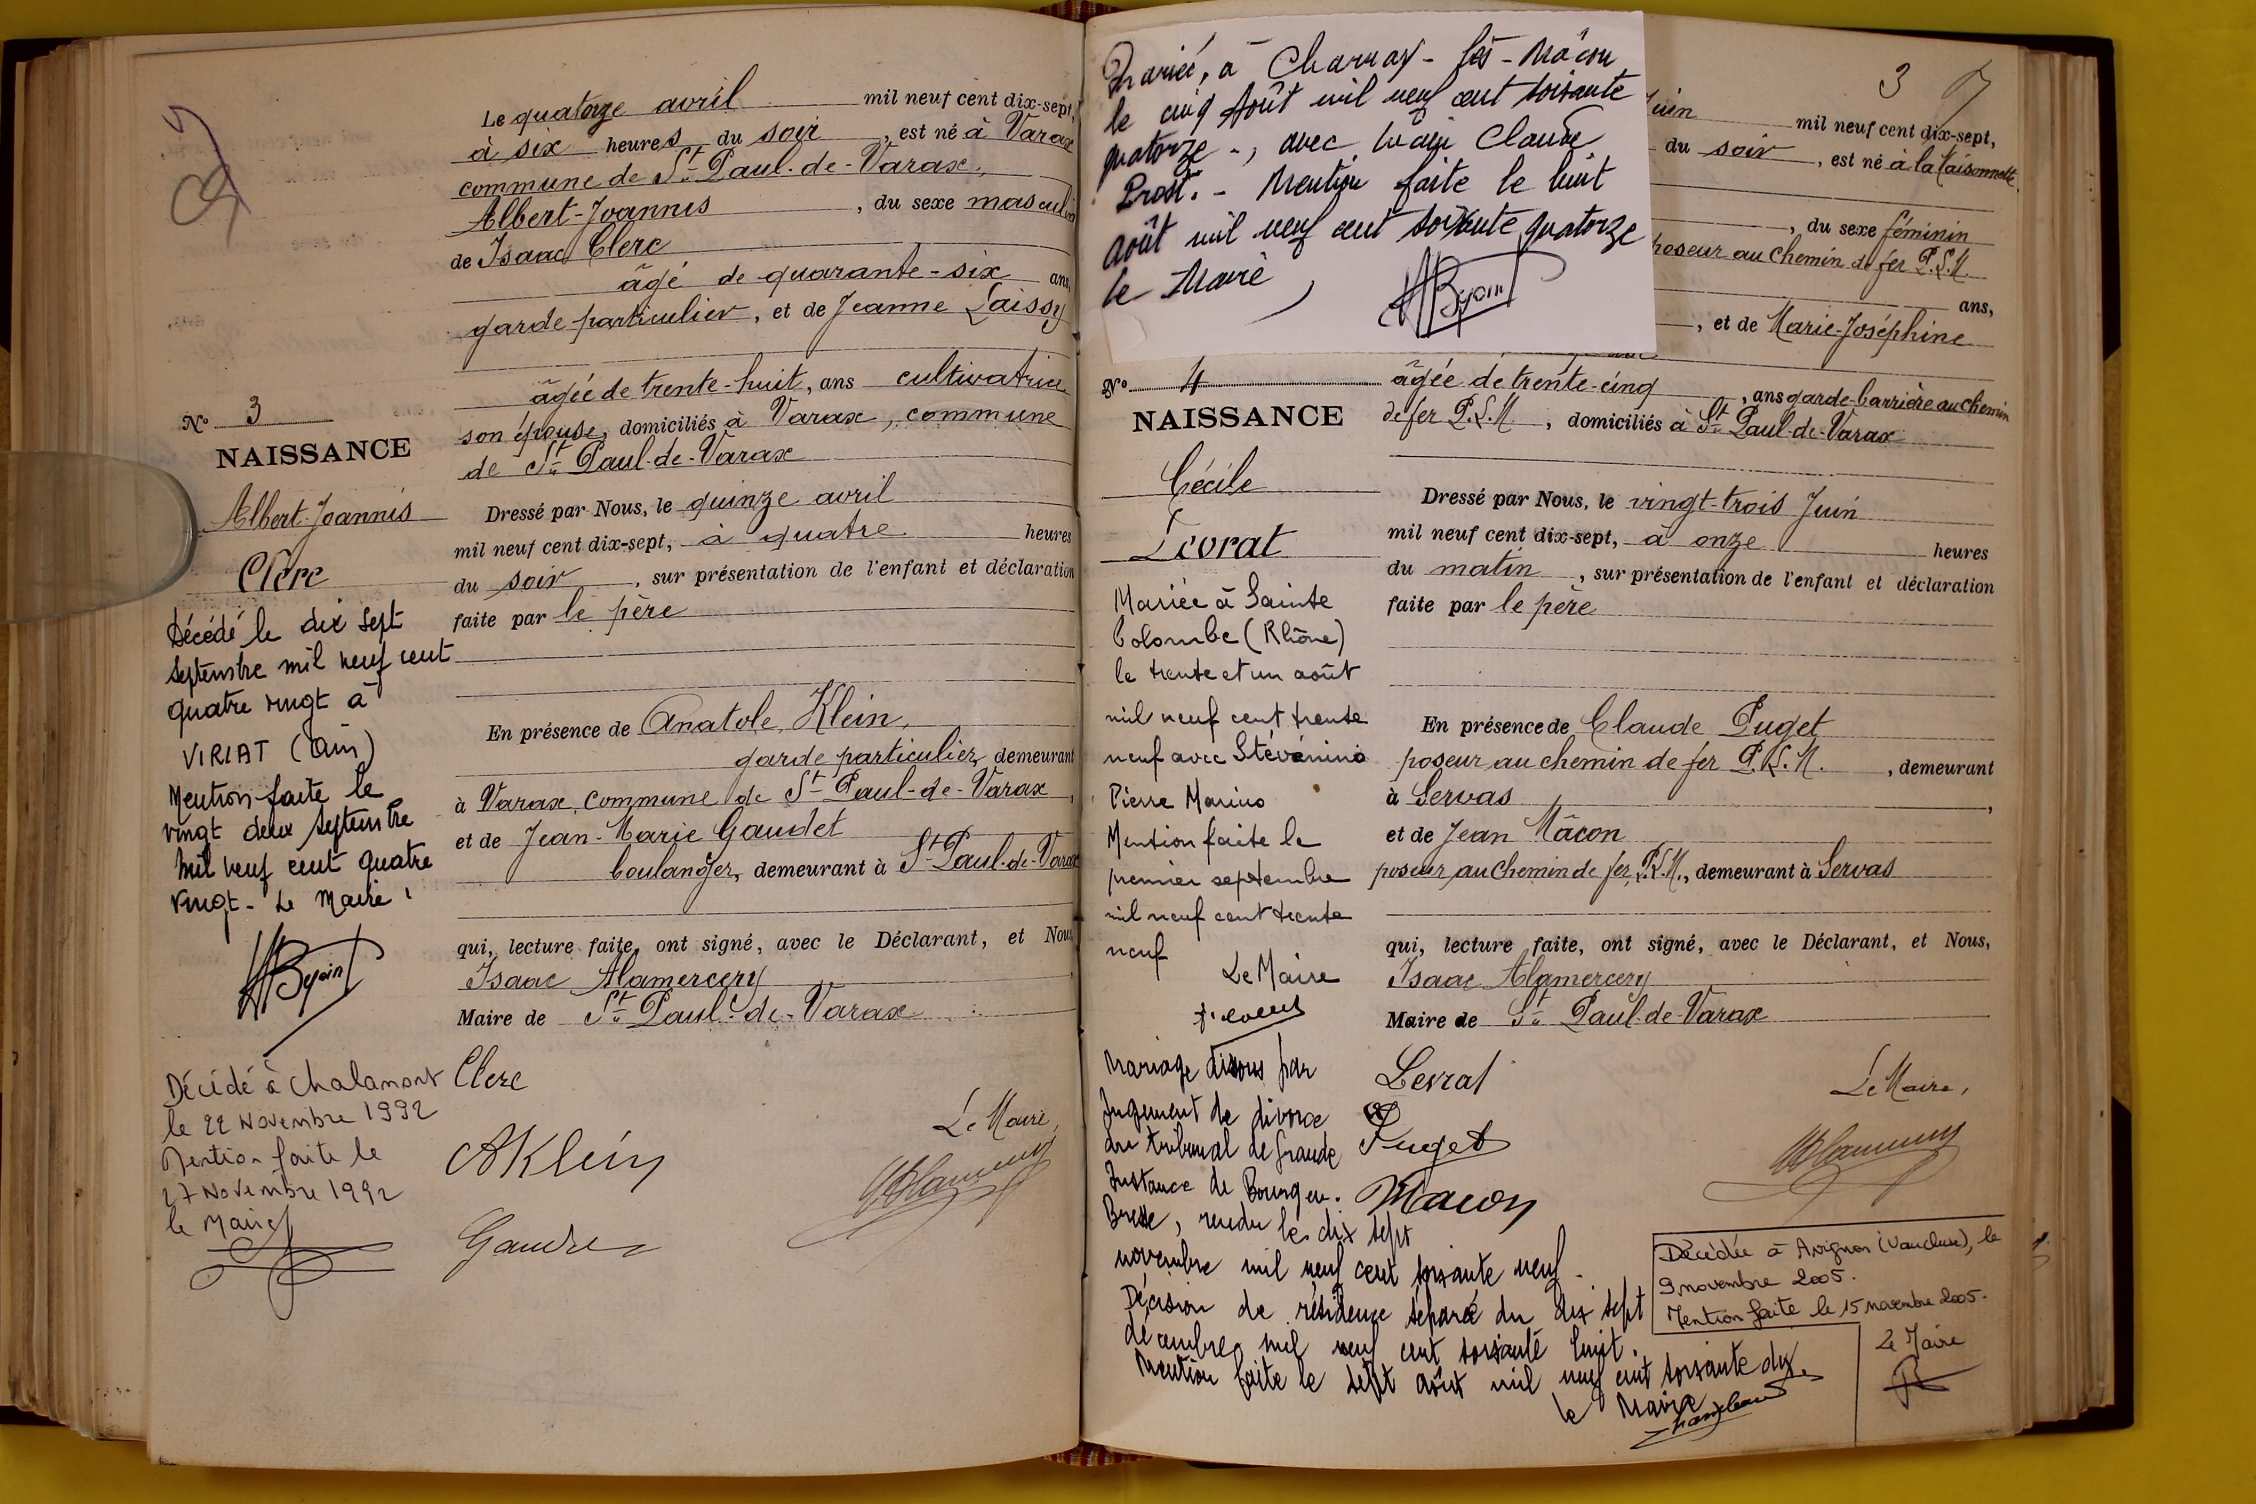 Le quatorze avril mil neuf cent dix-sept,
à six heures du soir, est né à Varax
commune de St Paul-de-Varax,
Albert-Joannis, du sexe masculin
de Isaac Clerc
âgé de quarante-six ans,
garde particulier, et de Jeanne Laissy
âgée de trente-huit, ans cultivatrice
son épouse, domiciliés à Varax, commune
de St Paul-de-Varax
Dressé par Nous, le quinze avril
mil neuf cent dix-sept, à quatre heures
du soir, sur présentation de l'enfant et déclaration
faite par le père
En présence de Anatole Klein,
garde particulier, demeurant
à Varax commune de St Paul-de-Varax,
et de Jean-Marie Gaudet
boulanger, demeurant à St Paul-de-Varax
qui, lecture faite, ont signé, avec le Déclarant, et Nous
Isaac Alamercery
Maire de St Paul-de-Varax
Clerc
Le Maire,
AKlein
No 3
NAISSANCE
Albert-Joannis
Clerc
Décédé le dix sept
septembre mil neuf cent
quatre vingt à
VIRIAT (Ain)
Mention faite le
vingt deux septembre
mil neuf cent quatre
vingt - Le Maire,
Décédé à Chalamont
le 22 Novembre 1992
Mention faite le
27 Novembre 1992
le Maire
Mariée, à Charnay-lès-Mâcon
le cinq Août mil neuf cent soixante
quatorze -, avec Claude
Prost. - Mention faite le huit
août mil neuf cent soixante quatorze
le Maire,
3
Juin mil neuf cent dix-sept,
du soir, est né à la Maisonnette
, du sexe féminin
poseur au chemin de fer P.L.M.
ans,
, et de Marie-Joséphine
âgée de trente-cinq, ans garde-barrière au chemin
de fer P.L.M, domiciliés à St Paul-de-Varax
Dressé par Nous, le vingt-trois Juin
mil neuf cent dix-sept, à onze heures
du matin, sur présentation de l'enfant et déclaration
faite par le père
En présence de Claude Puget
poseur au chemin de fer P.L.M., demeurant
à Servas,
et de Jean Mâcon
poseur au chemin de fer P.L.M., demeurant à Servas
qui, lecture faite, ont signé, avec le Déclarant, et Nous,
Isaac Alamercery
Maire de St Paul-de-Varax
Levrat
Le Maire,
Puget
Macon
No 4
NAISSANCE
Cécile
Levrat
Mariée à Sainte
Colombe (Rhône)
le trente et un août
mil neuf cent trente
neuf avec Stévenino
Pierre Marino
Mention faite le
premier septembre
mil neuf cent trente
neuf
Le Maire
Mariage dissous par
Jugement de divorce
du tribunal de Grande
Instance de Bourg en-
Bresse, rendu le dix sept
novembre mil neuf cent soixante neuf.
Décision de résidence séparée du dix sept
décembre mil neuf cent soixante huit.
Mention faite le sept août mil neuf cent soixante dix.
le Maire
Décédée à Avignon (Vaucluse), le
9 novembre 2005.
Mention faite le 15 novembre 2005.
Le Maire